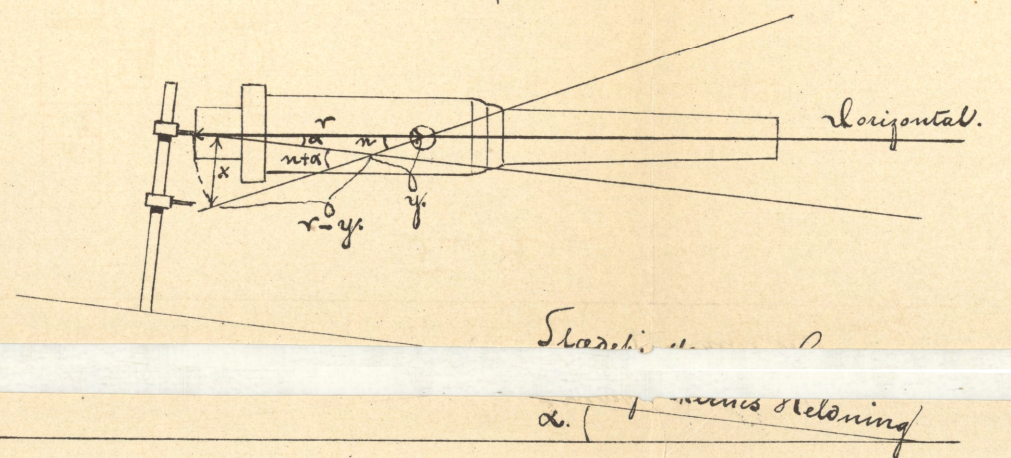 Horizontal.
r
α n
n+α
x
y.
r-y.
α.
Heldning